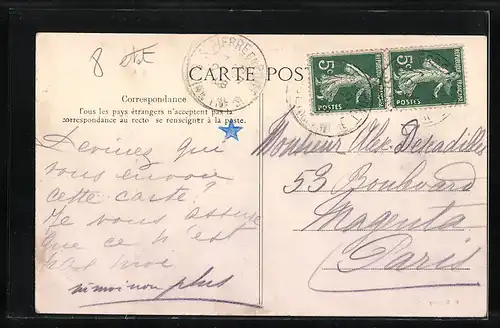 8 
CARTE POST
Correspondance
Tous les pays étrangers n'acceptent pas la
correspondance au recto se renseigner à la poste.
5c
POSTES
5c
POSTES
Devinez qui
vous envoie
cette carte?
Je vous assure
que ce n'est
pas moi
ni moi non plus
Monsieur Alex
53 Boulevard
Magenta
Paris